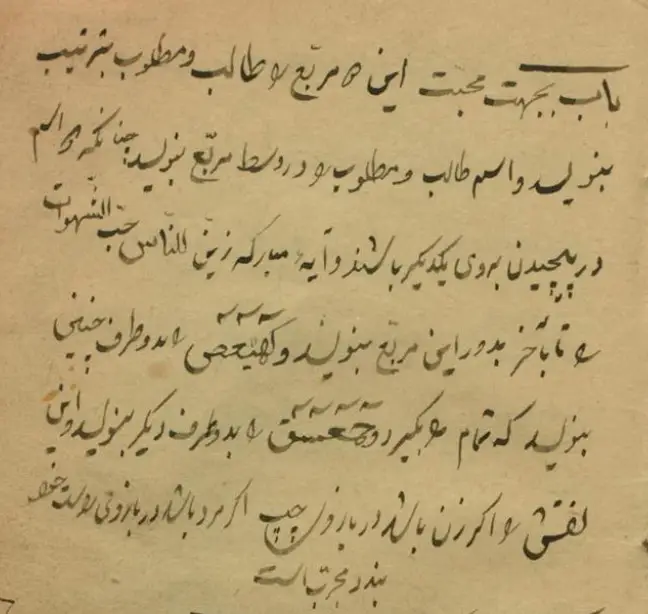 باب بجهت محبّت این مربّع را طالب و مطلوب بترتیب
بنویسد و اسم طالب و مطلوب را در وسط مربّع بنویسد چنانکه اسم
در پیچیدن بروی یکدیگر باشند و آیهٔ مبارکه زیّن للنّاس حبّ الشّهوات
را تا بآخر بدور این مربّع بنویسد و کهیعص را بدو طرف چنین
بنویسد که تمام را بگیرد و حمعسق را بدو طرف دیگر بنویسد و این
نقش را اگر زن باشد در بازوی چپ اگر مرد باشد در بازوی راست خود
بندد مجرّب است